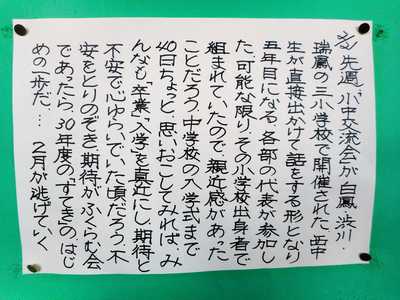 先週、小中交流会が白鳳、渋川、
瑞鳳の三小学校で開催された。西中
生が直接出かけて話をする形となり
五年目になる。各部の代表が参加し
た。可能な限り、その小学校出身者で
組まれていたので親近感があった
ことだろう。中学校の入学式まで
40日ちょっと、思いおこしてみれば、み
んなも「卒業」「入学」を直近にし、期待と
不安で心ゆらいでいた頃だろう。不
安をとりのぞき期待がふくらむ会
であったら、30年度の「すてき」の、はじ
めの一歩だ…　2月が逃げていく、